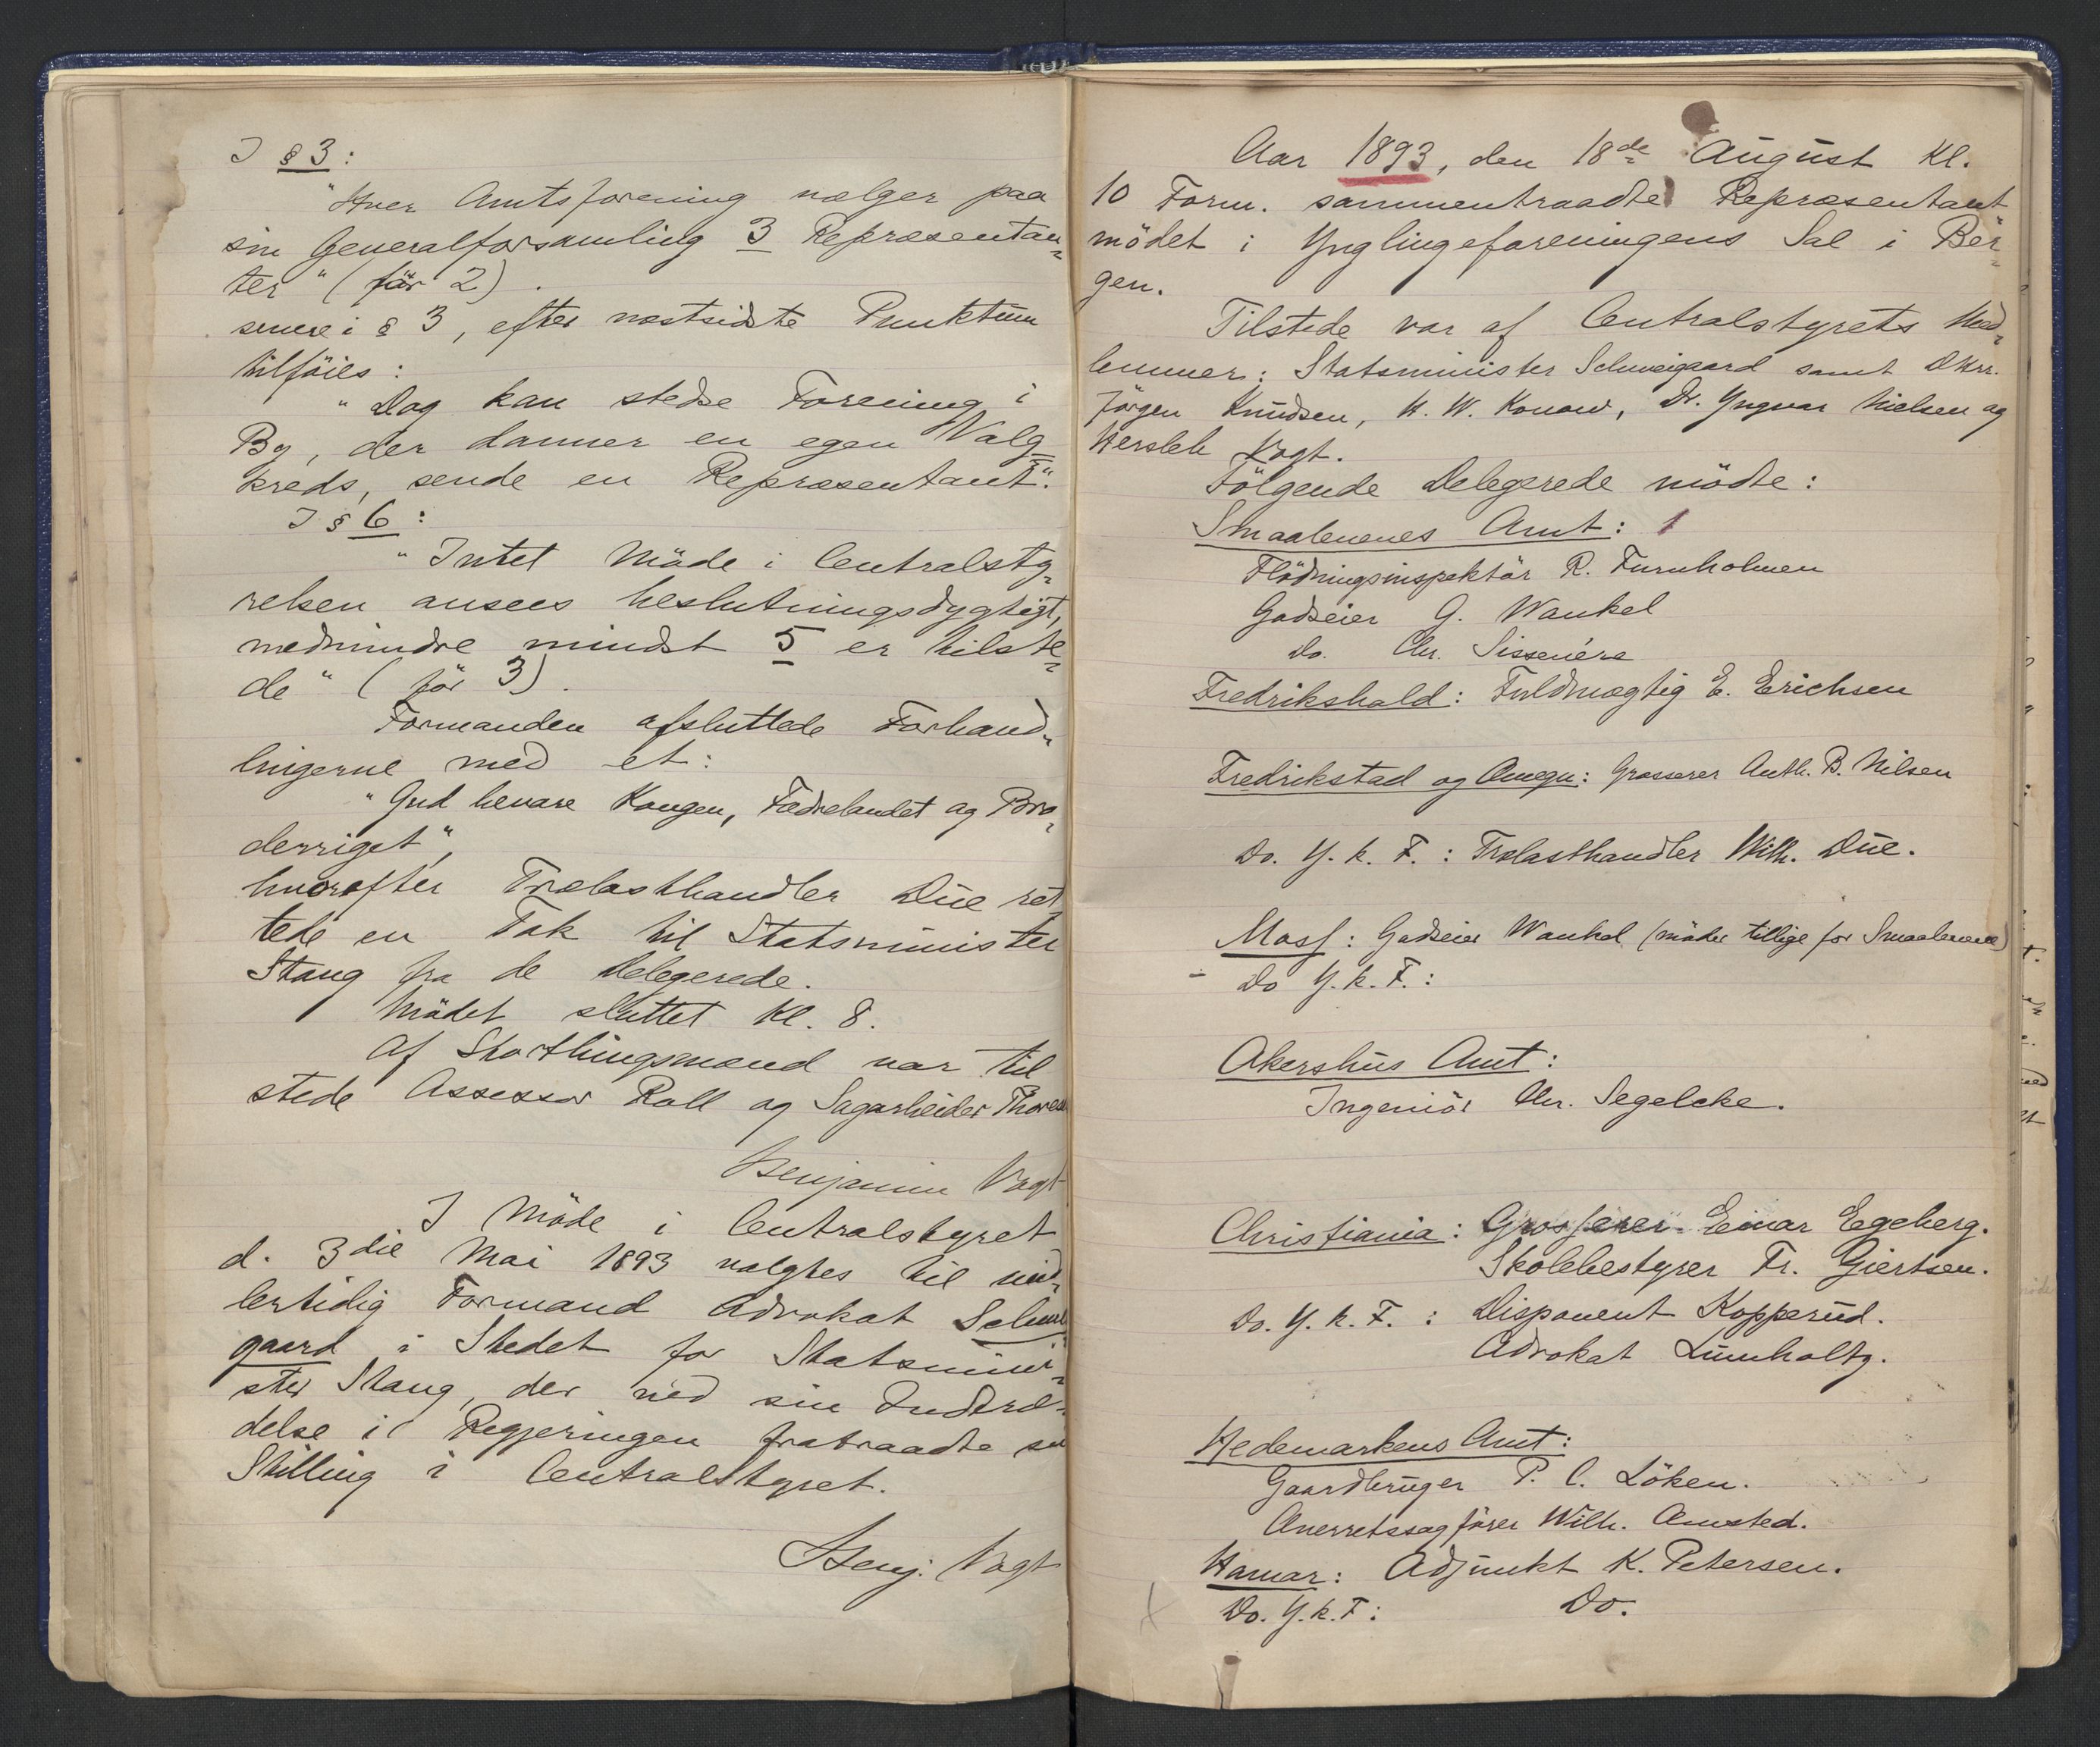 I § 3:
"Hver Amtsforening vælger paa
sin Generalforsamling 3 Repræsentan=
ter" (før 2).
senere i § 3, efter næstsidste Punktum
tilføies:
"Dog kan stedse Forening i
By, der danner en egen Valg=
kreds, sende en Repræsentant".
I § 6:
"Intet Møde i Centralsty=
relsen ansees beslutningsdygtigt,
medmindre mindst 5 er tilste=
de" (før 3).
Formanden afsluttede Forhand=
lingerne med et:
"Gud bevare Kongen, Fædrelandet og Bro=
derriget",
hvorefter Trælasthandler Due ret
tede en Tak til Statsminister
Stang fra de Delegerede.
Mødet sluttet Kl. 8.
Af Storthingsmænd var til
stede Assessor Roll og Sagarbeider Thorese
Benjamin Vogt
I Møde i Centralstyret
d. 3die Mai 1893 valgtes til mid=
lertidig Formand Advokat Schwei
gaard i Stedet for Statsmini=
ster Stang, der ved sin Indtræ=
delse i Regjeringen fratraadte sin
Stilling i Centralstyret.
Benj. Vogt
Aar 1893, den 18de August Kl.
10 Form. sammentraadte Repræsentant
mødet i Ynglingeforeningens Sal i Ber=
gen.
Tilstede var af Centralstyrets Med=
lemmer: Statsminister Schweigaard samt DHrr.
Jørgen Knudsen, W. Konow, Dr. Yngvar Nielsen og
Hersleb Vogt.
Følgende Delegerede mødte:
Smaalenenes Amt: 1
Flødningsinspektør R. Furuholmen
Godseier G. Wankel
Do. Chr. Sissenére
Fredrikshald: Fuldmægtig E. Erichsen
Fredrikstad og Omegn: Grosserer Anth. B. Nilsen
Do. Y. k. F.: Trælasthandler Wilh. Due.
Moss: Godseier Wankel (møder tillige for Smaalenene)
- Do Y. k. F.:
Akershus Amt:
Ingeniør Chr. Segelcke.
Christiania: Grosserer Einar Egeberg.
Skolebestyrer Fr. Gjertsen.
Do. Y. k. F.: Disponent Kopperud.
Advokat Lumholtz.
Hedemarkens Amt:
Gaardbruger P. C. Løken.
Overretssagfører Wilh. Omsted.
Hamar: Adjunkt K. Petersen.
Do. Y. k. F: Do.